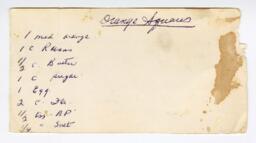 Orange Squares
1 med orange
1 C Raisins
1/2 C. Butter
1 C sugar
1 Egg
2 C. Flo
1/2 tsp BP
3/4 " Salt